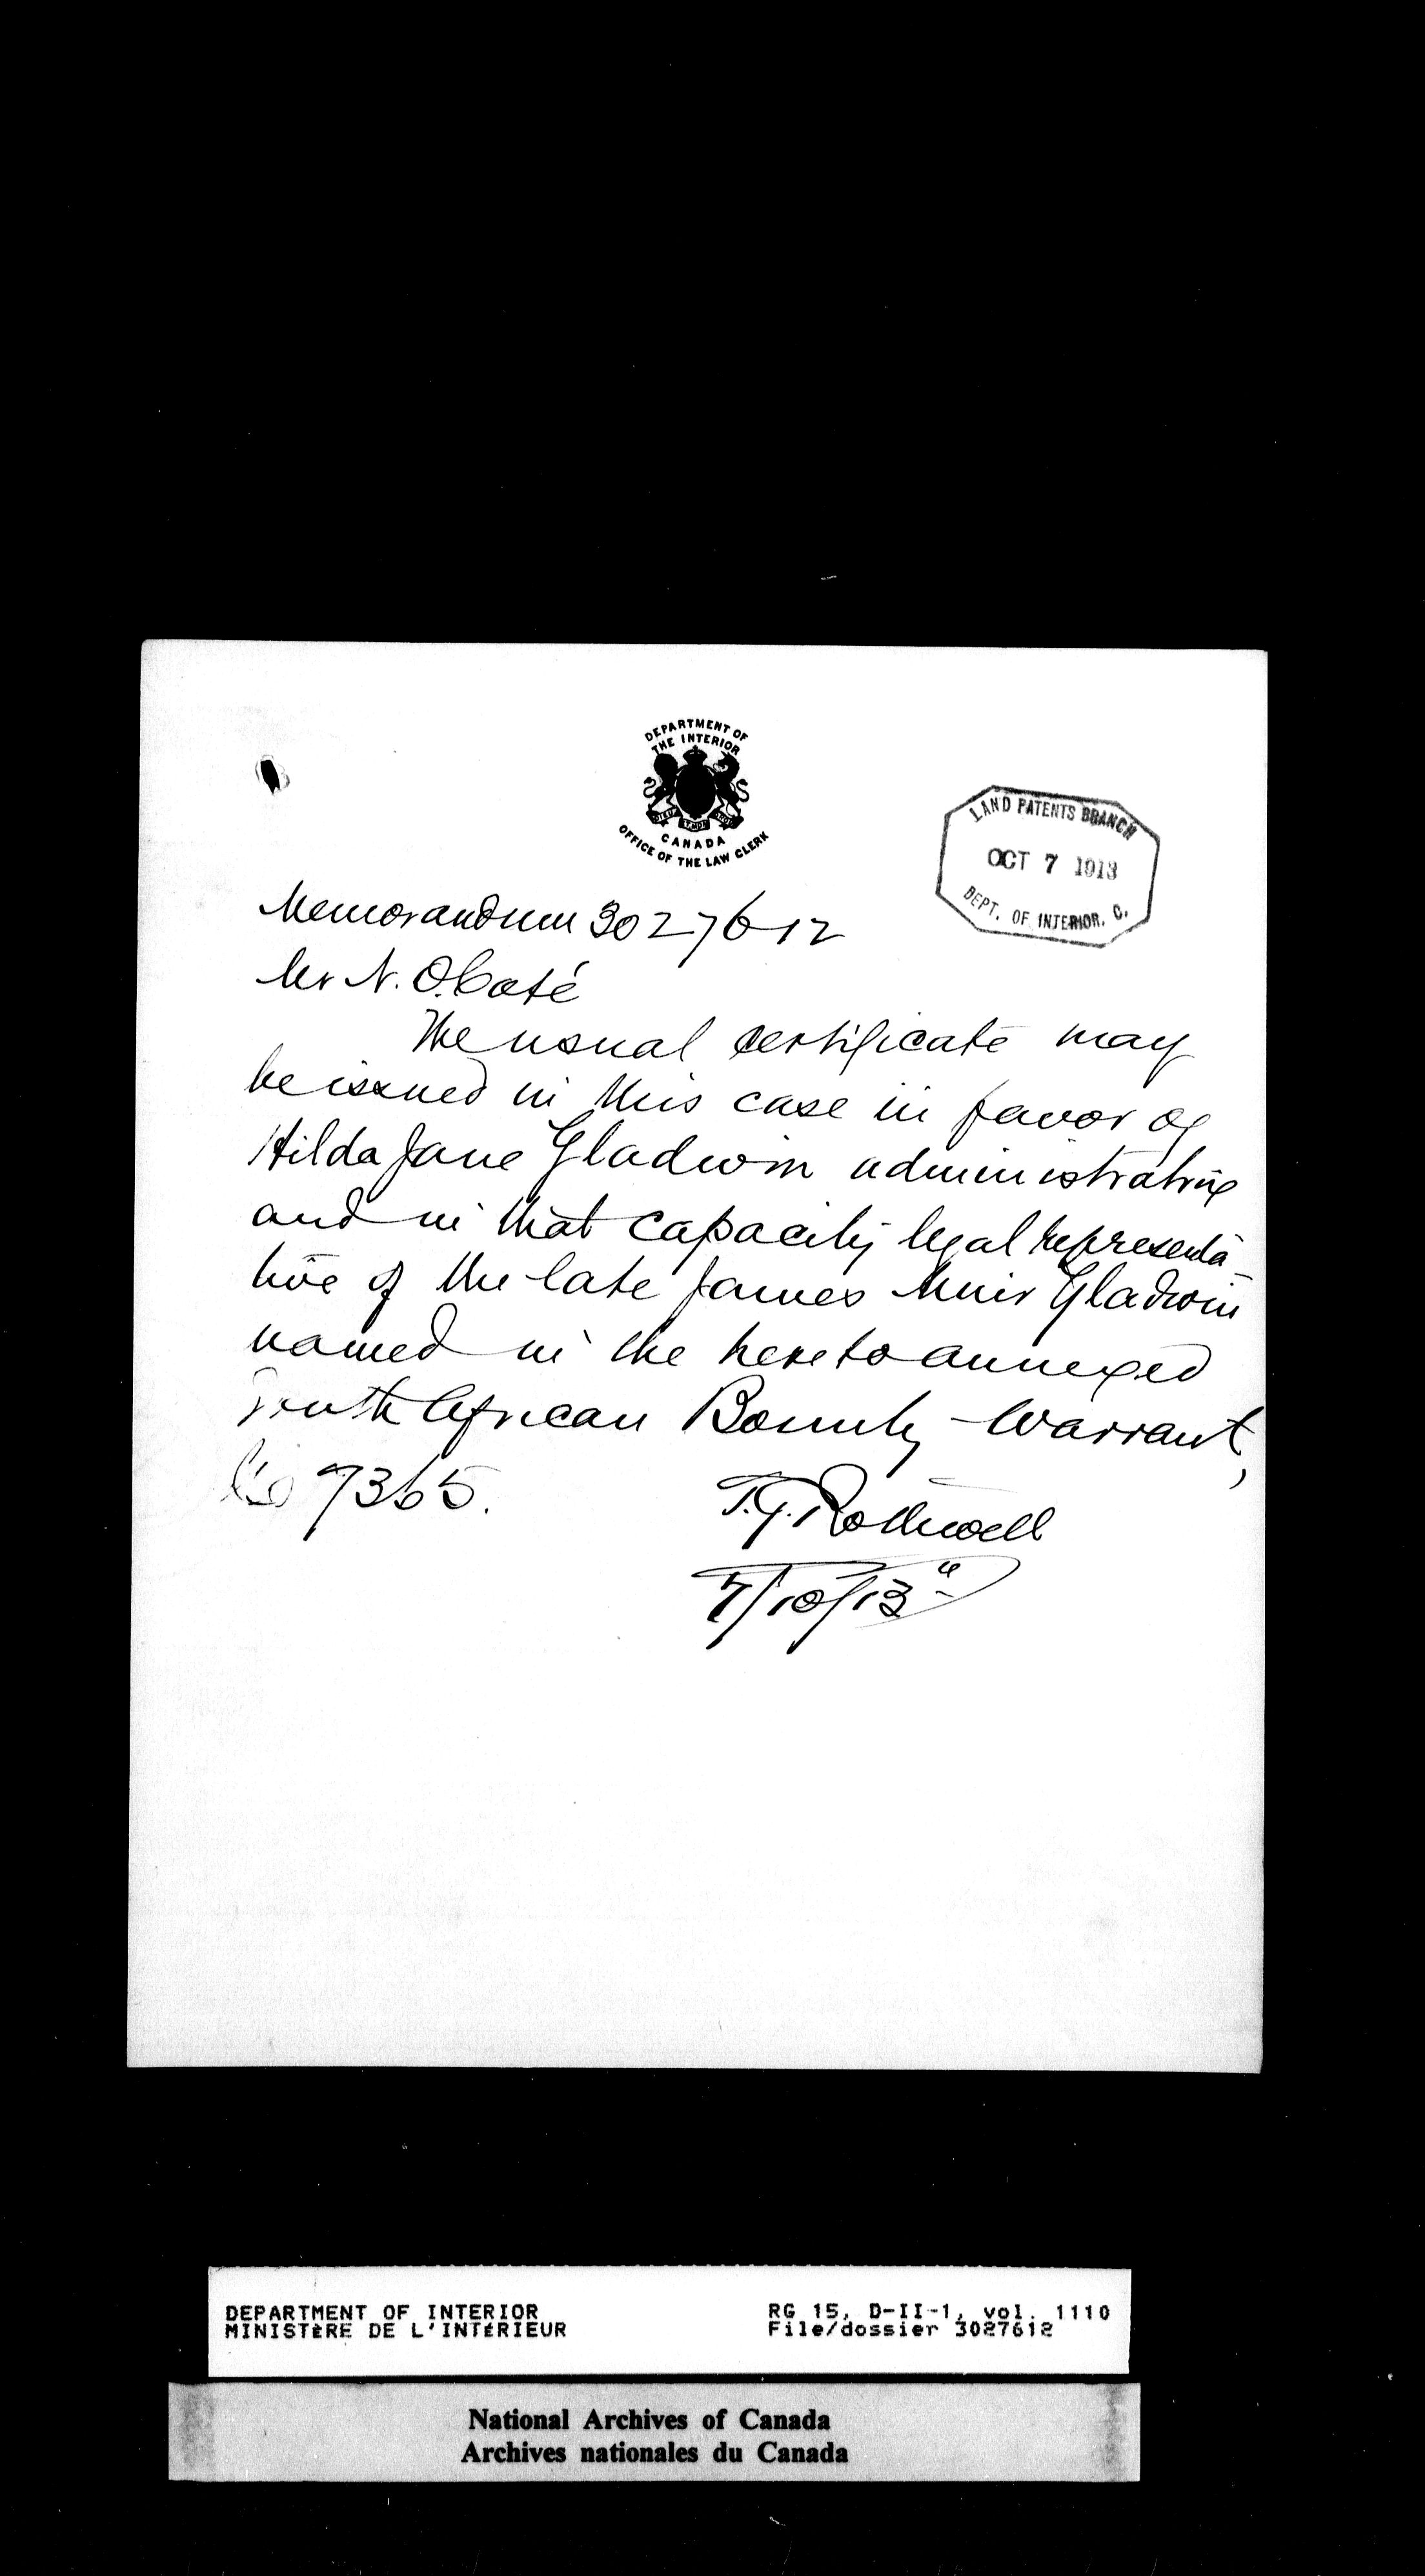 DEPARTMENT OF
THE INTERIOR
DIEU ET MON DROIT
CANADA
OFFICE OF THE LAW CLERK
LAND PATENTS BRANCH
OCT 7 1913
DEPT. OF INTERIOR. C.
Memorandum 3027612
Mr N. O. Coté
The usual certificate may
be issued in this case in favor of
Hilda Jane Gladwin administratrix
and in that capacity legal representa-
tive of the late James Muir Gladwin
named in the hereto annexed
South African Bounty Warrant,
No 7365.
T.G. Rothwell
7/10/13
DEPARTMENT OF INTERIOR
MINISTÈRE DE L'INTÉRIEUR
RG 15, D-II-1, vol. 1110
File/dossier 3027612
National Archives of Canada
Archives nationales du Canada